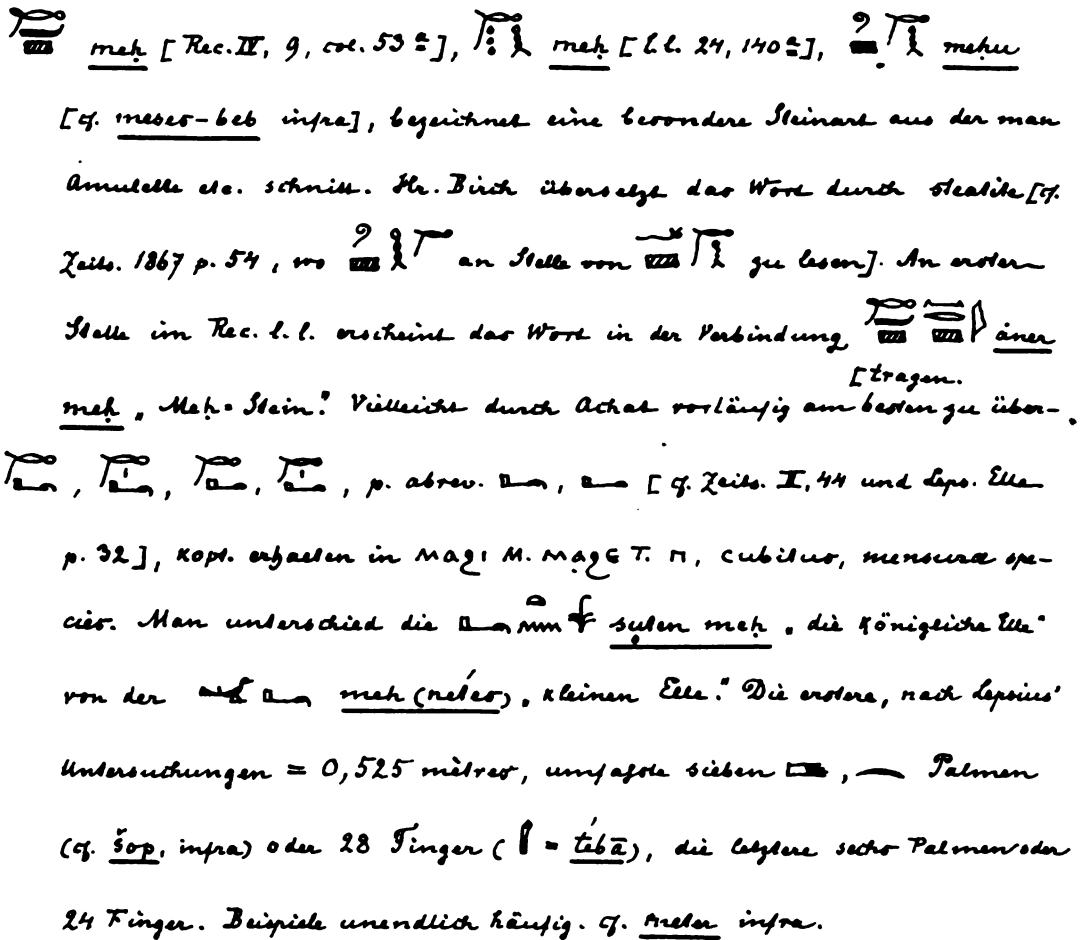 meḥ [Rec. IV, 9, col. 53 a], meḥ [l. l. 24, 140 a], mehu
[cf. meses-beb infra], bezeichnet eine besondere Steinart aus der man
Amulette etc. schnitt. Hr. Birch übersetzt das Wort durch steatite [cf.
Zeits. 1867 p. 54, wo an Stelle von zu lesen]. An erster
Stelle im Rec. l. l. erscheint das Wort in der Verbindung áner
[tragen.
meḥ „Meḥ-Stein.“ Vielleicht durch Achat vorläufig am besten zu über-
, , , , p. abrev. , [cf. Zeits. II, 44 und Leps. Elle
p. 32], kopt. erhalten in ⲙⲁϩⲓ M. ⲙⲁϩⲉ T. ⲡ, cubitus, mensurae spe-
cies. Man unterschied die suten meḥ „die königliche Elle“
von der meh (net́es), „kleinen Elle.“ Die erstere, nach Lepsius'
Untersuchungen = 0,525 mètres, umfasste sieben , Palmen
(cf. šop, infra) oder 28 Finger ( = t́ebā), die letztere sechs Palmen oder
24 Finger. Beispiele unendlich häufig. cf. infra.